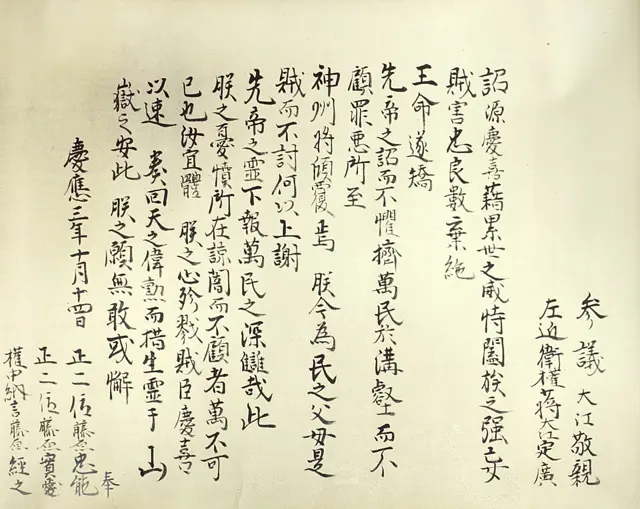 参議 大江敬親
左近衛権中将大江定廣
詔源慶喜藉累世之威恃闔族之强妄
賊害忠良數棄絶
王命遂矯
先帝之詔而不懼擠萬民於溝壑而不
顧罪悪所至
神州将傾覆焉 朕今為民之父母是
賊而不討何以上謝
先帝之靈下報萬民之深讎哉此
朕之憂憤所在諒闇而不顧者萬不可
已也汝宜體 朕之心殄戮賊臣慶喜
以速 奏回天之偉勲而措生靈于 山
嶽之安此 朕之願無敢或懈
慶應三年十月十四日 正二位藤原忠能
正二位藤原實愛
權中納言藤原經之
奉